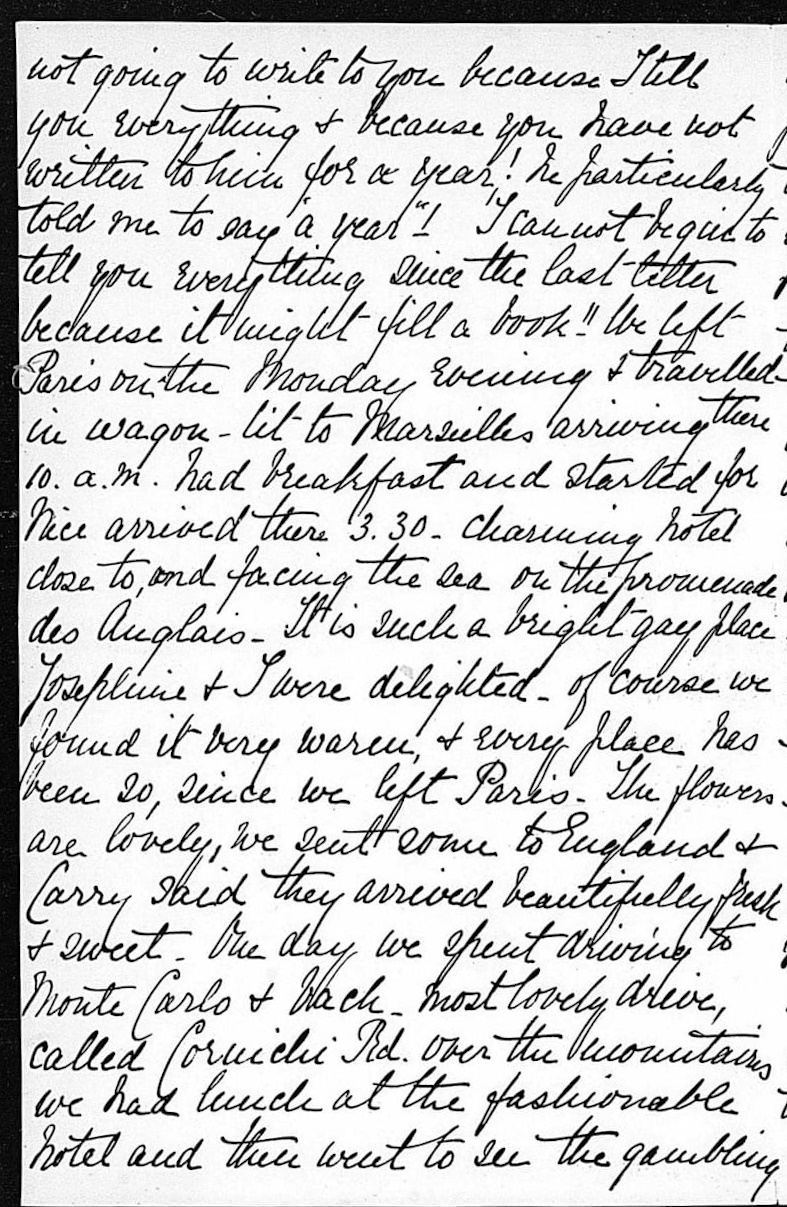 not going to write to you because I tell
you everything & because you have not
written to him for a year! He particularly
told me to say "a year"! I cannot begin to
tell you everything since the last letter
because it might fill a book!! We left
Paris on the Monday Evening & travelled
in wagon-lit to Marseilles arriving there
10. a.m. had breakfast and started for
Nice arrived there 3.30 - charming hotel
close to, and facing the sea on the promenade
des Anglais - It is such a bright gay place
Josephine & I were delighted - of course we
found it very warm, & every place has
been so, since we left Paris - The flowers
are lovely, we sent some to England &
Carry said they arrived beautifully fresh
& sweet - One day we spent driving to
Monte Carlo & back - most lovely drive,
called Cornichi Rd. over the mountains
we had lunch at the fashionable
hotel and then went to see the gambling